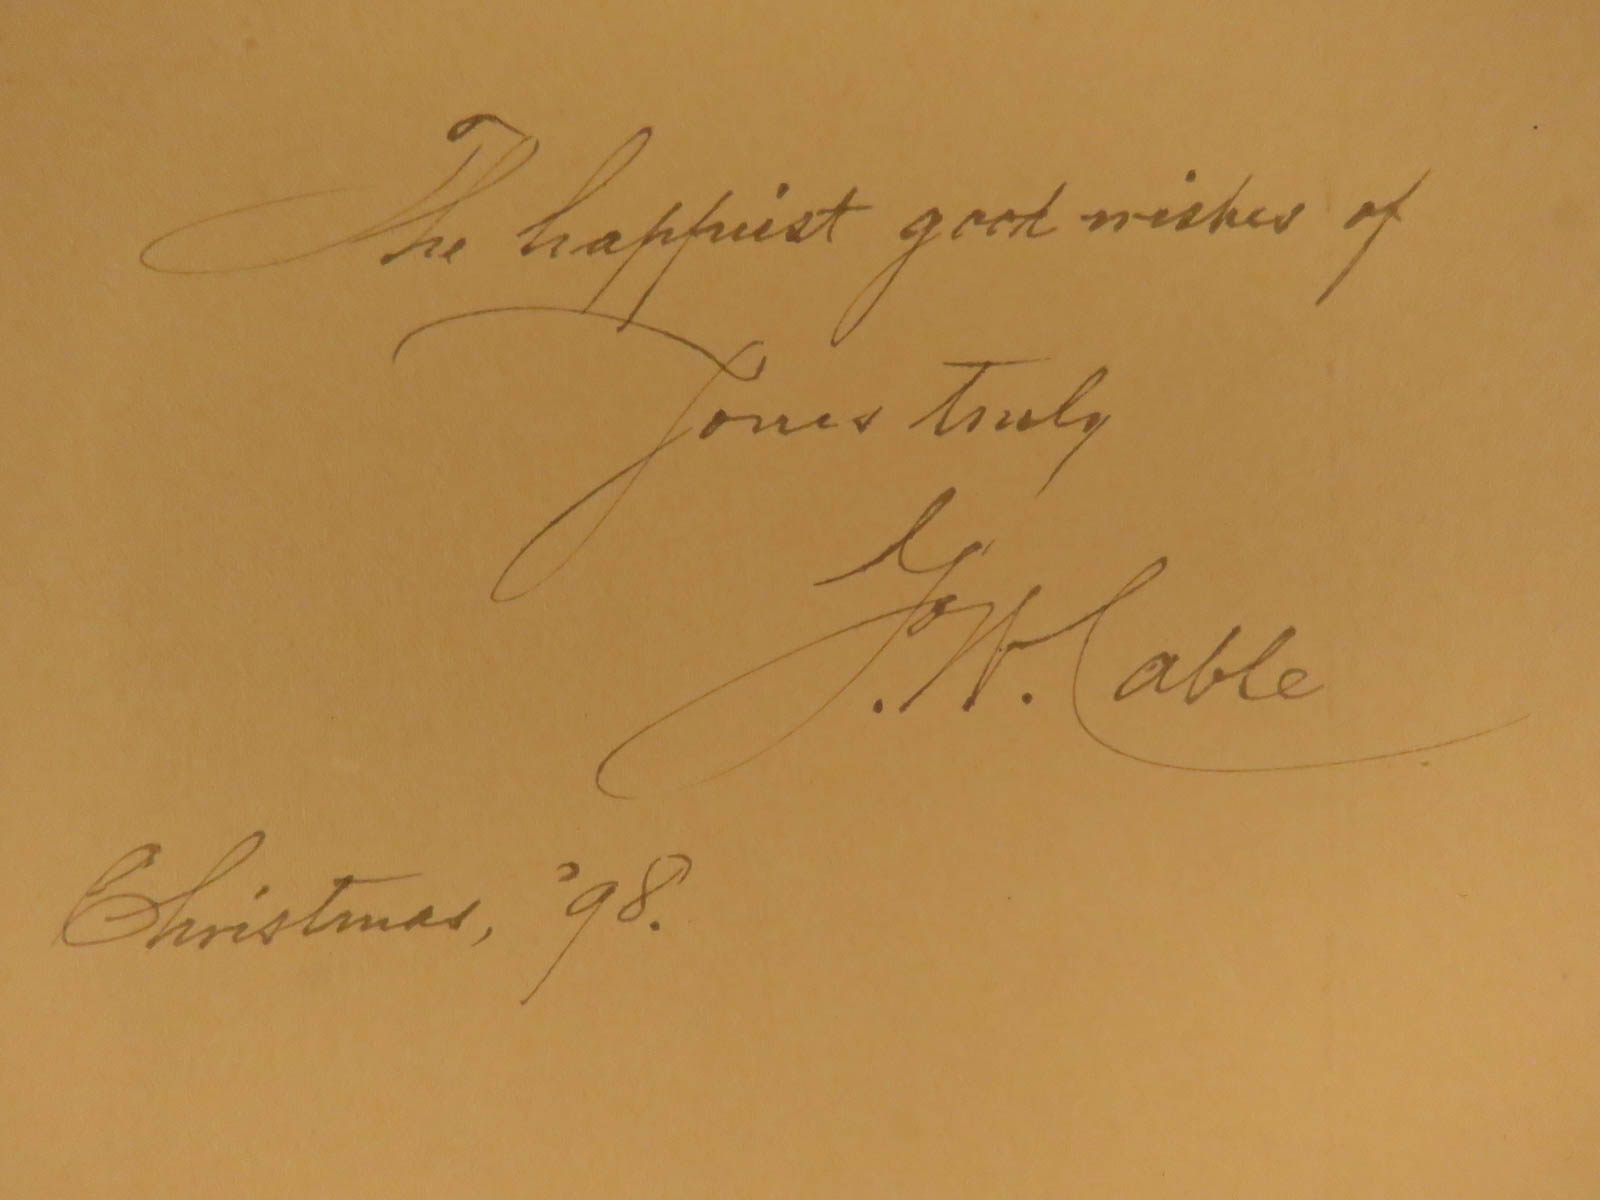 The happiest good wishes of
Yours truly
G. W. Cable
Christmas, '98.